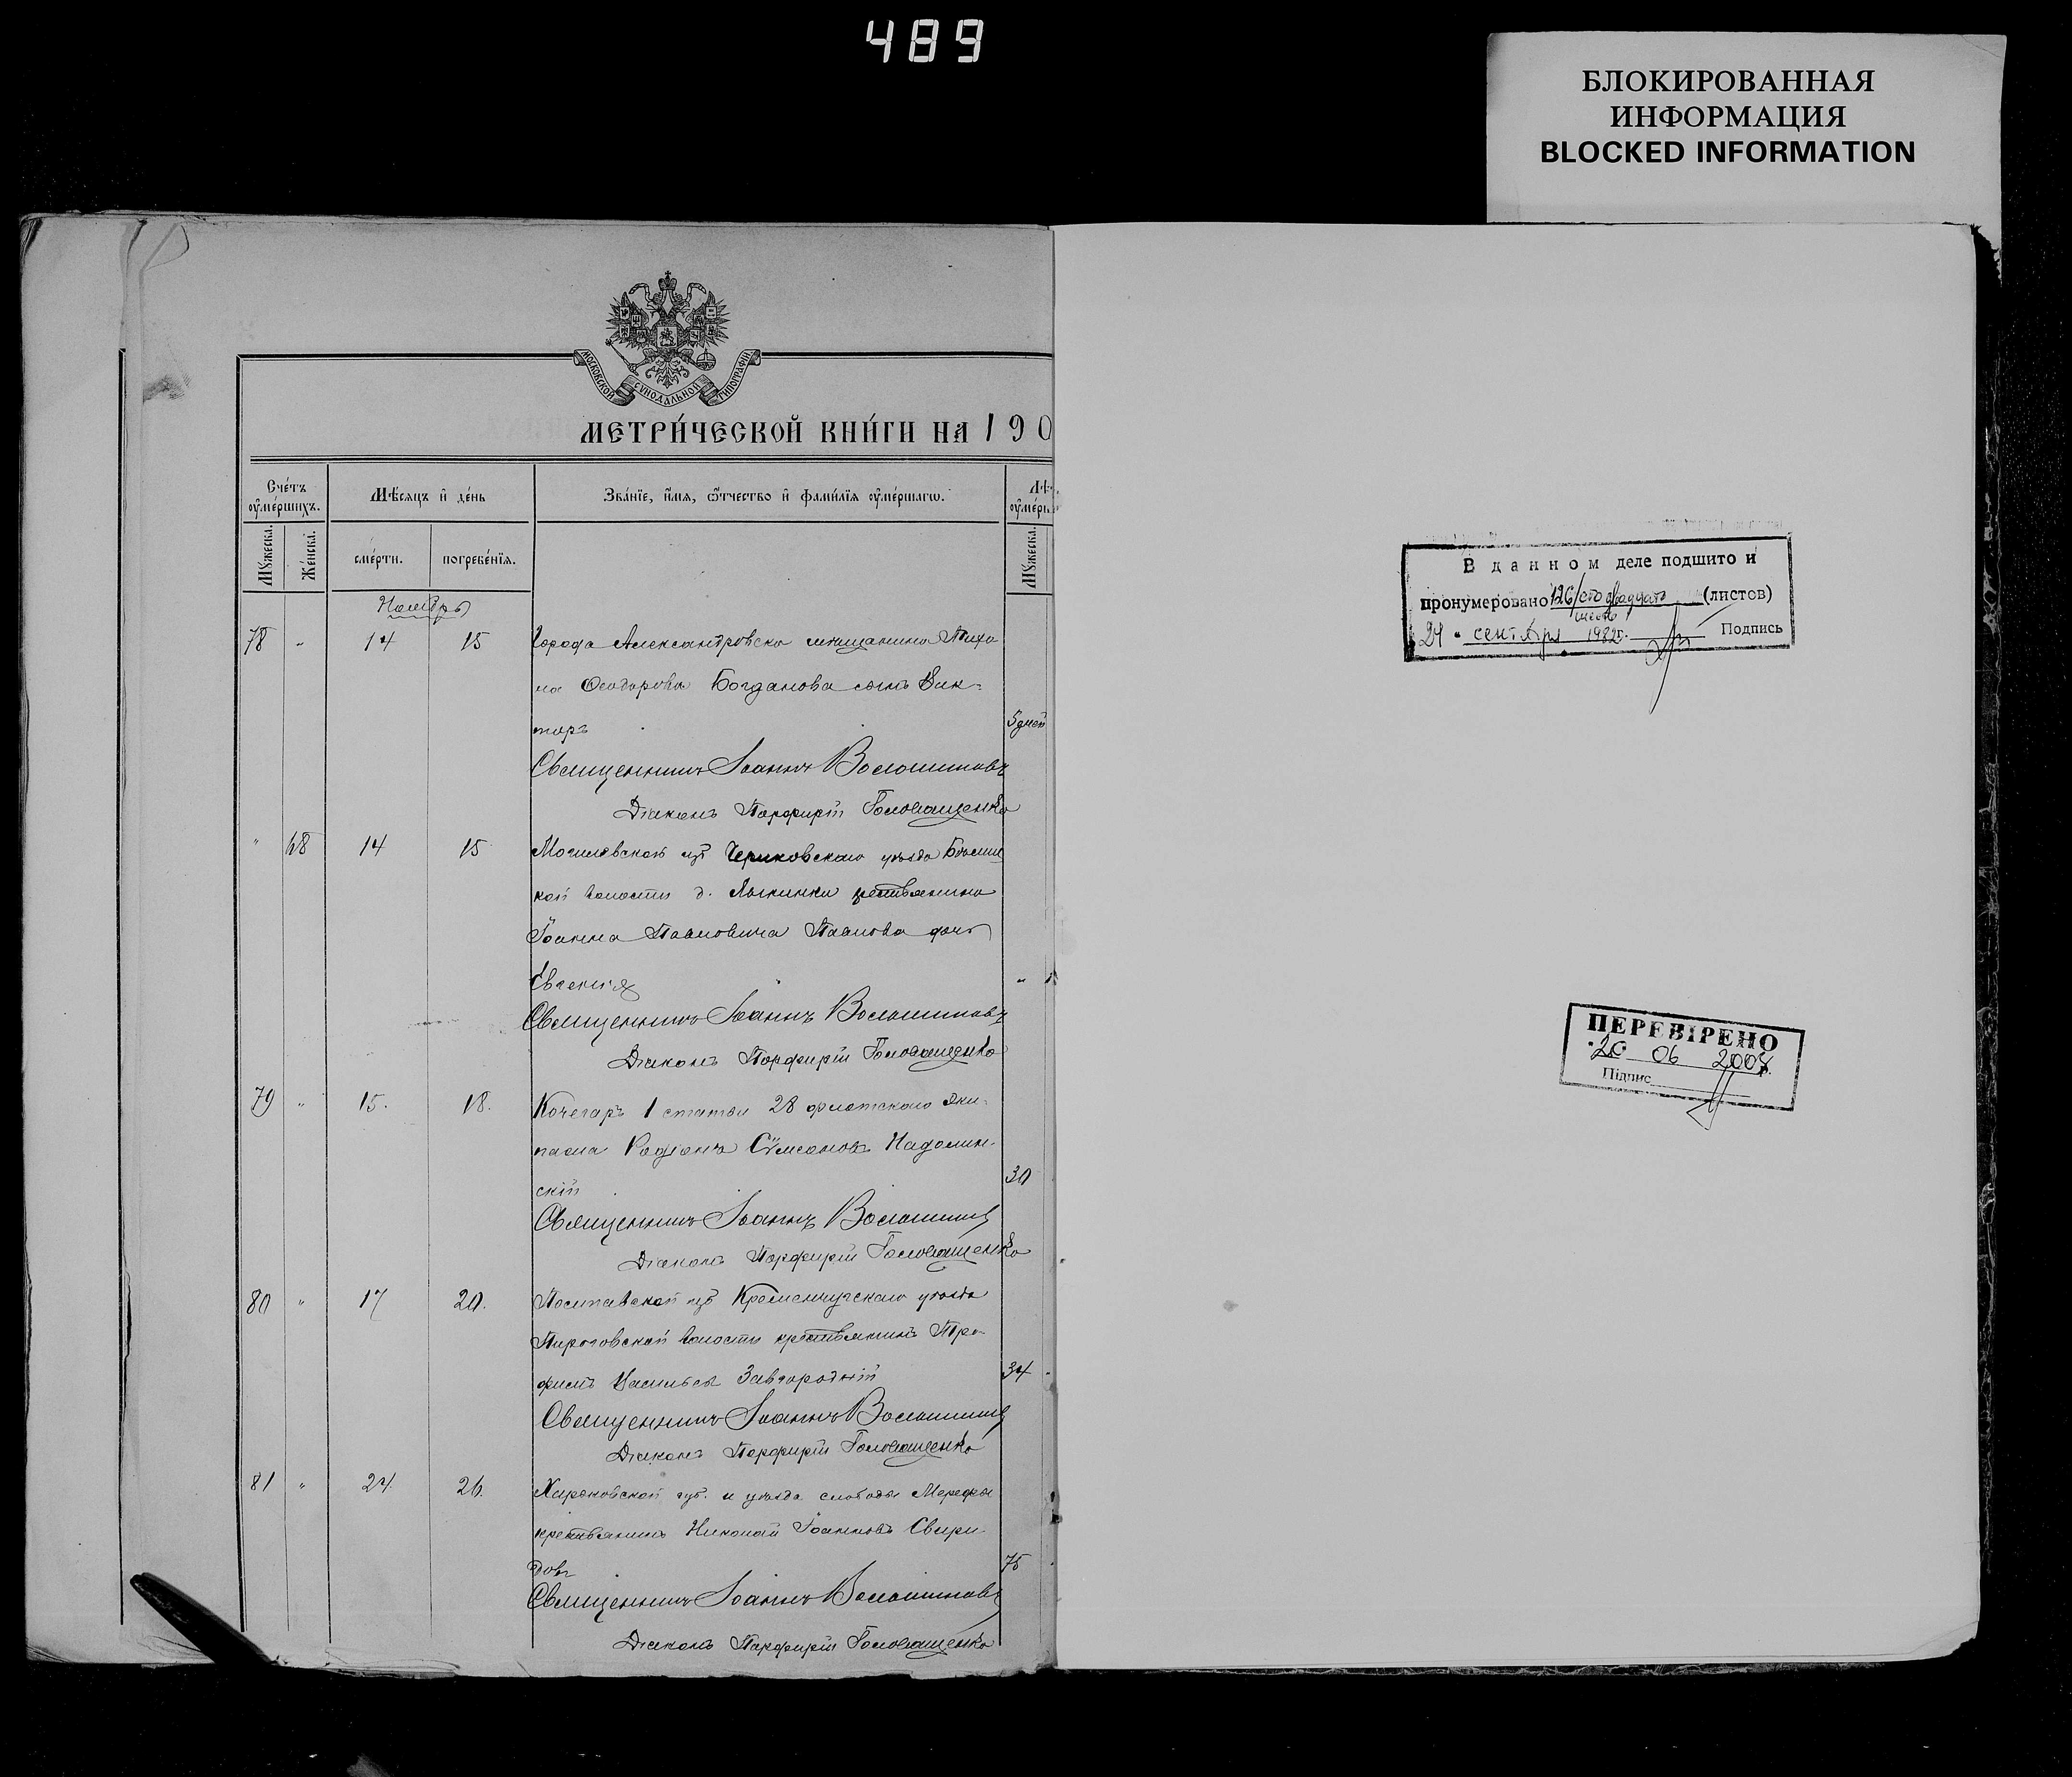 489
БЛОКИРОВАННАЯ
ИНФОРМАЦИЯ
BLOCKED INFORMATION
МОСКОВСКОЙ СѴНОДАЛЬНОЙ ТИПОГРАФІИ
МЕТРИ́ЧЕСКОЙ КНИ́ГИ НА 190
Счéтъ ᲂумéршихъ.
Мѣ́сяцъ и҆ дéнь
Звáнїе, и҆́мя, ѻ҆́тчество и҆ фами́лїя ᲂумéршагѡ.
Лѣ
ᲂумéрш
Мꙋ́жеска.
Жéнска.
смéрти.
погребéнїя.
Мꙋ́жеска.
Ноябрь
78 " 14 15 Города Александровска мѣщанина Тихо
на Ѳеодорова Богданова сынъ Вик-
торъ 5 дней
Священникъ Іоаннъ Волошиновъ
Діаконъ Порфирій Головащенко
" 68 14 15 Могилевской губ Чериковскаго уѣзда
кой волости д. крестьянина
Іоанна Павловича Павлова дочь
Евгенія "
Священникъ Іоаннъ Волошиновъ
Діаконъ Порфирій Головащенко
79 " 15. 18. Кочегаръ 1 статьи 28 флотскаго Эки-
пажа Родіонъ Сѵмеоновъ Надолин-
скій 30
Священникъ Іоаннъ Волошиновъ
Діаконъ Порфирій Головащенко
80 " 17 20. Полтавской губ Кременчугскаго уѣзда
Пироговской волости крестьянинъ Тро-
фимъ Васильевъ Завгородній 34
Священникъ Іоаннъ Волошиновъ
Діаконъ Порфирій Головащенко
81 " 24. 26. Харьковской губ. и уѣзда слободы Мерефы
крестьянинъ Николай Іоанновъ Свири-
довъ 75
Священникъ Іоаннъ Волошиновъ
Діаконъ Порфирій Головащенко
В данном деле подшито и
пронумеровано 126 /сто двадцать (листов)
шесть/
24 " сентября 1982г. Подпись
ПЕРЕВІРЕНО
"20" 06 2008р.
Підпис